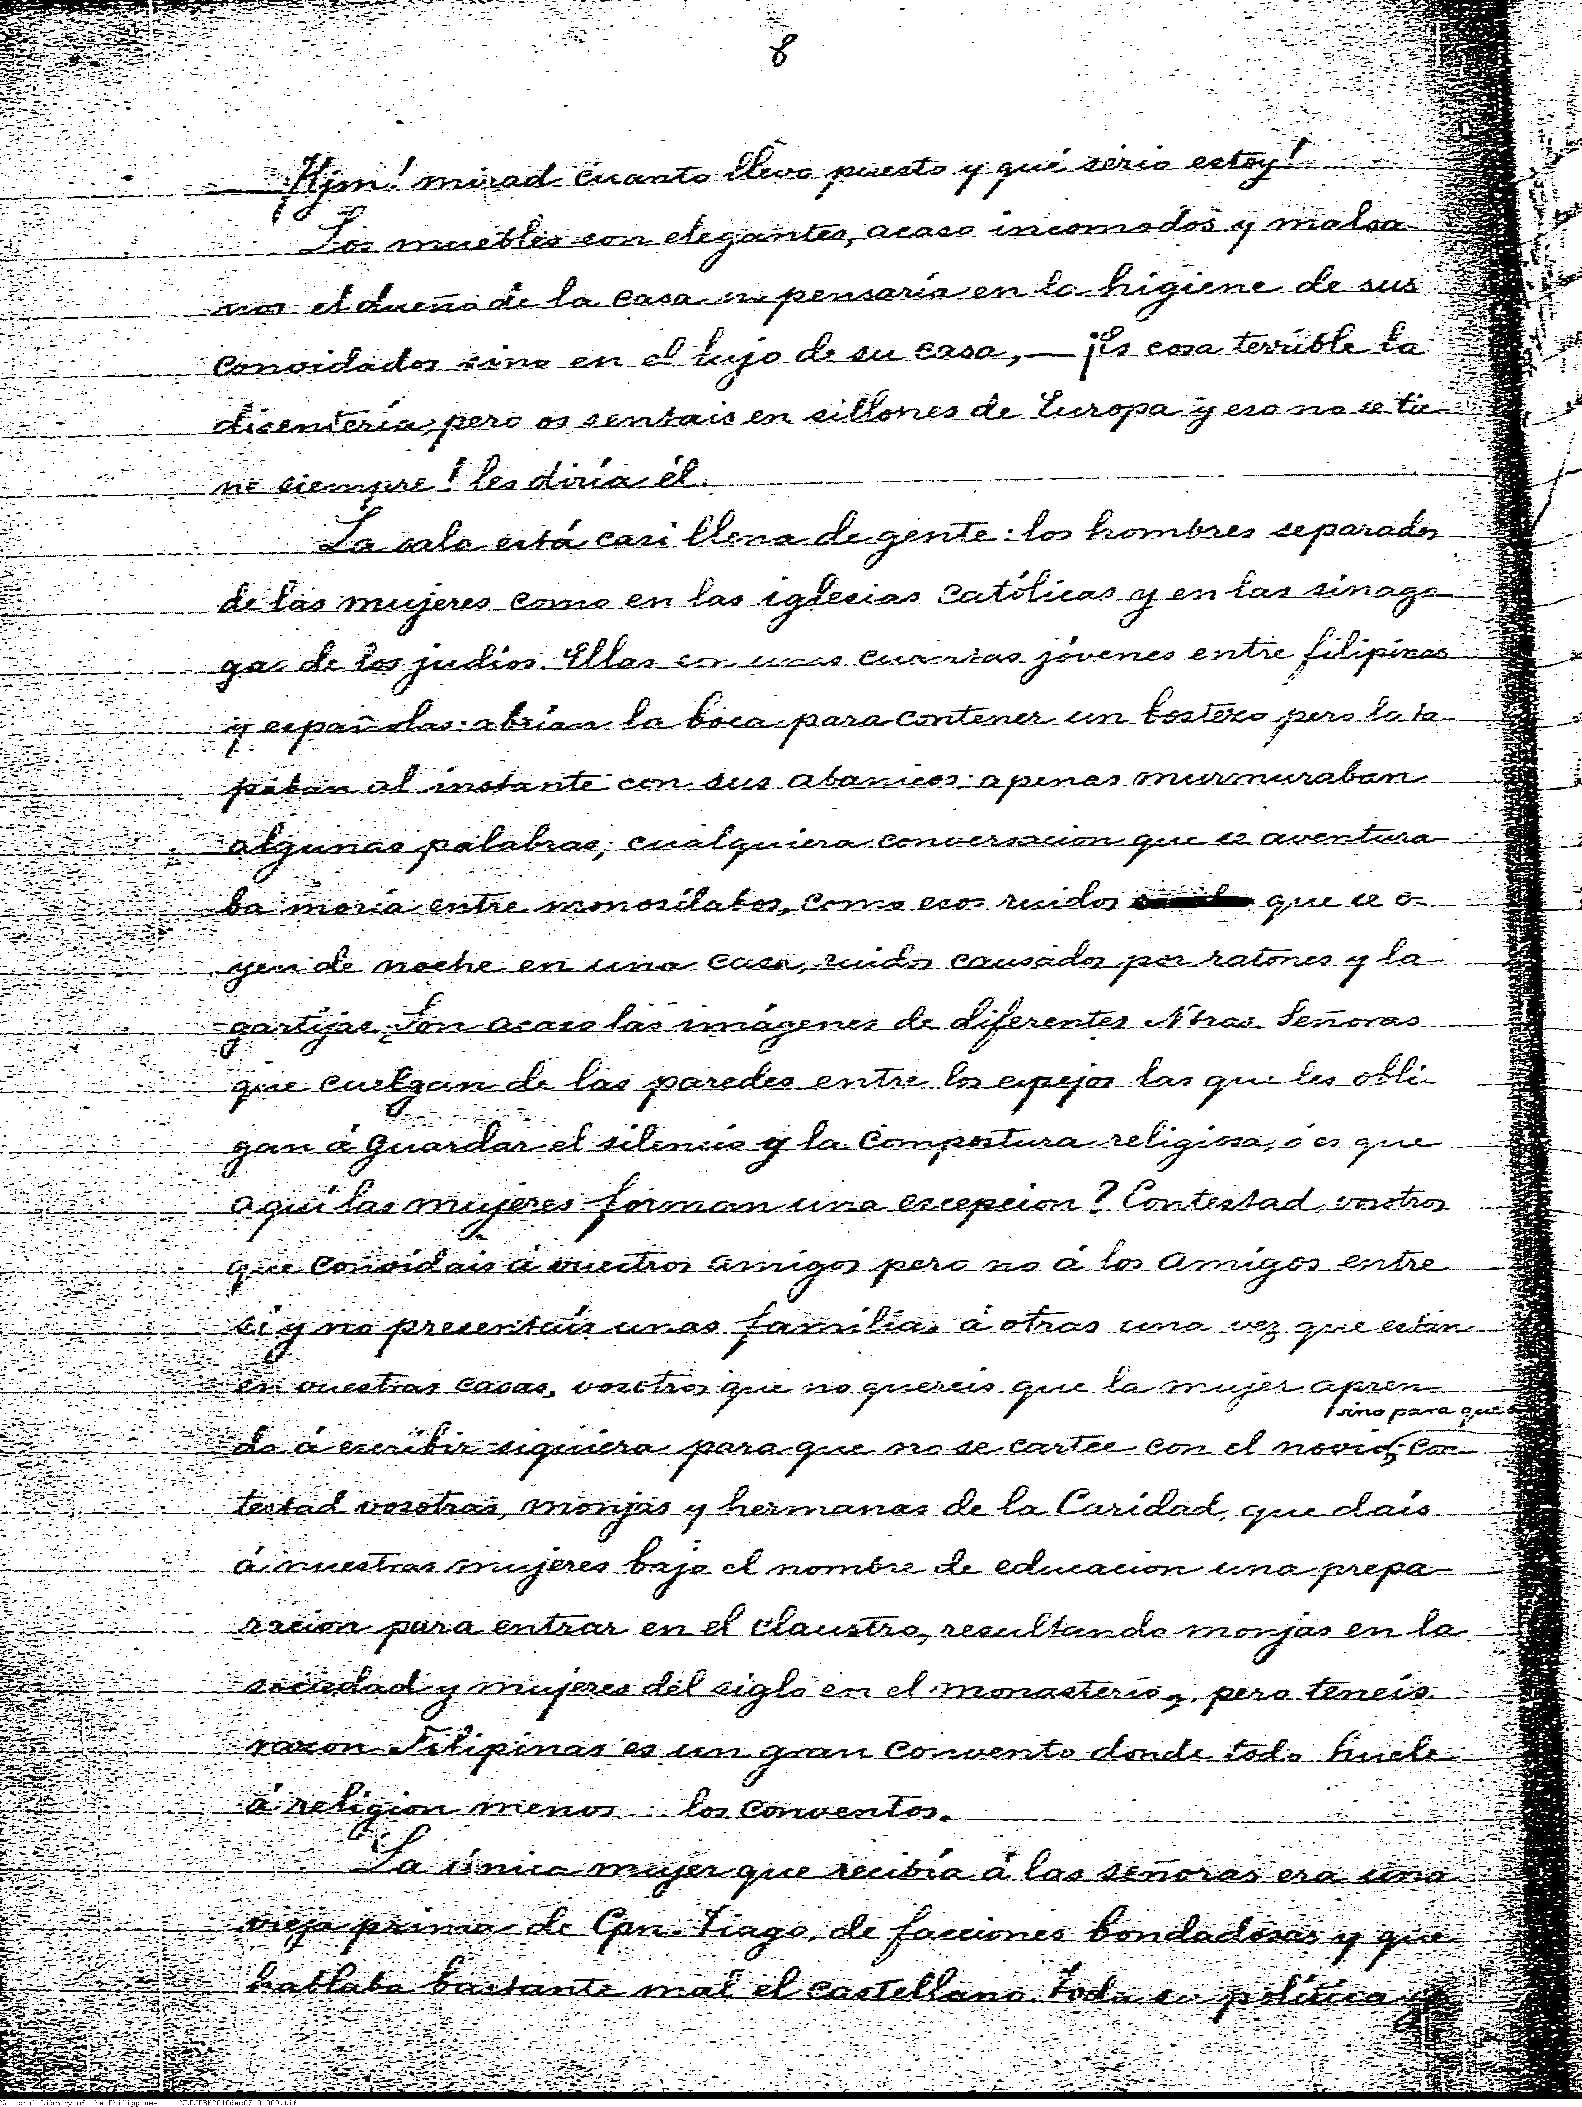 8
¡Hjm! mirad cuanto llevo puesto y qué serio estoy!
Los muebles son elegantes, acaso incomodos y malsa-
nos el dueño de la casa no pensaría en la higiene de sus
convidados sino en el lujo de su casa, — ¡Es cosa terrible la
disentería, pero os sentais en sillones de Europa y eso no se tie-
ne siempre! les diría él.
La sala está casi llena de gente: los hombres separados
de las mujeres como en las iglesias católicas y en las sinago-
gas de los judíos. Ellas son unas cuantas jóvenes entre filipinas
y españolas: abrían la boca para contener un bostezo pero la ta-
paban al instante con sus abanicos: apenas murmuraban
algunas palabras; cualquiera conversacion que se aventura-
ba moría entre monosílabos, como esos ruidos que se o-
yen de noche en una casa, ruidos causados por ratones y la-
gartijas. Son acaso las imágenes de diferentes Ntras. Señoras
que cuelgan de las paredes entre los espejos las que les obli-
gan á guardar el silencio y la compostura religiosa, ó es que
aquí las mujeres forman una escepcion? Contestad, vosotros
que convidais á vuestros amigos pero no á los amigos entre
sí y no presentais unas familias á otras una vez que están
en vuestras casas, vosotros que no quereis que la mujer apren-
sino para que
da á escribir siquiera para que no se cartee con el novio; con-
testad vosotras, monjas y hermanas de la Caridad, que dais
á nuestras mujeres bajo el nombre de educacion una prepa-
racion para entrar en el claustro, resultando monjas en la
sociedad y mujeres del siglo en el monasterio, pero teneis
razon Filipinas es un gran convento donde todo huele
á religion menos los conventos.
La única mujer que recibía á las señoras era una
vieja prima de Cpn. Tiago, de facciones bondadosas y que
hablaba bastante mal el castellano. Toda su política y